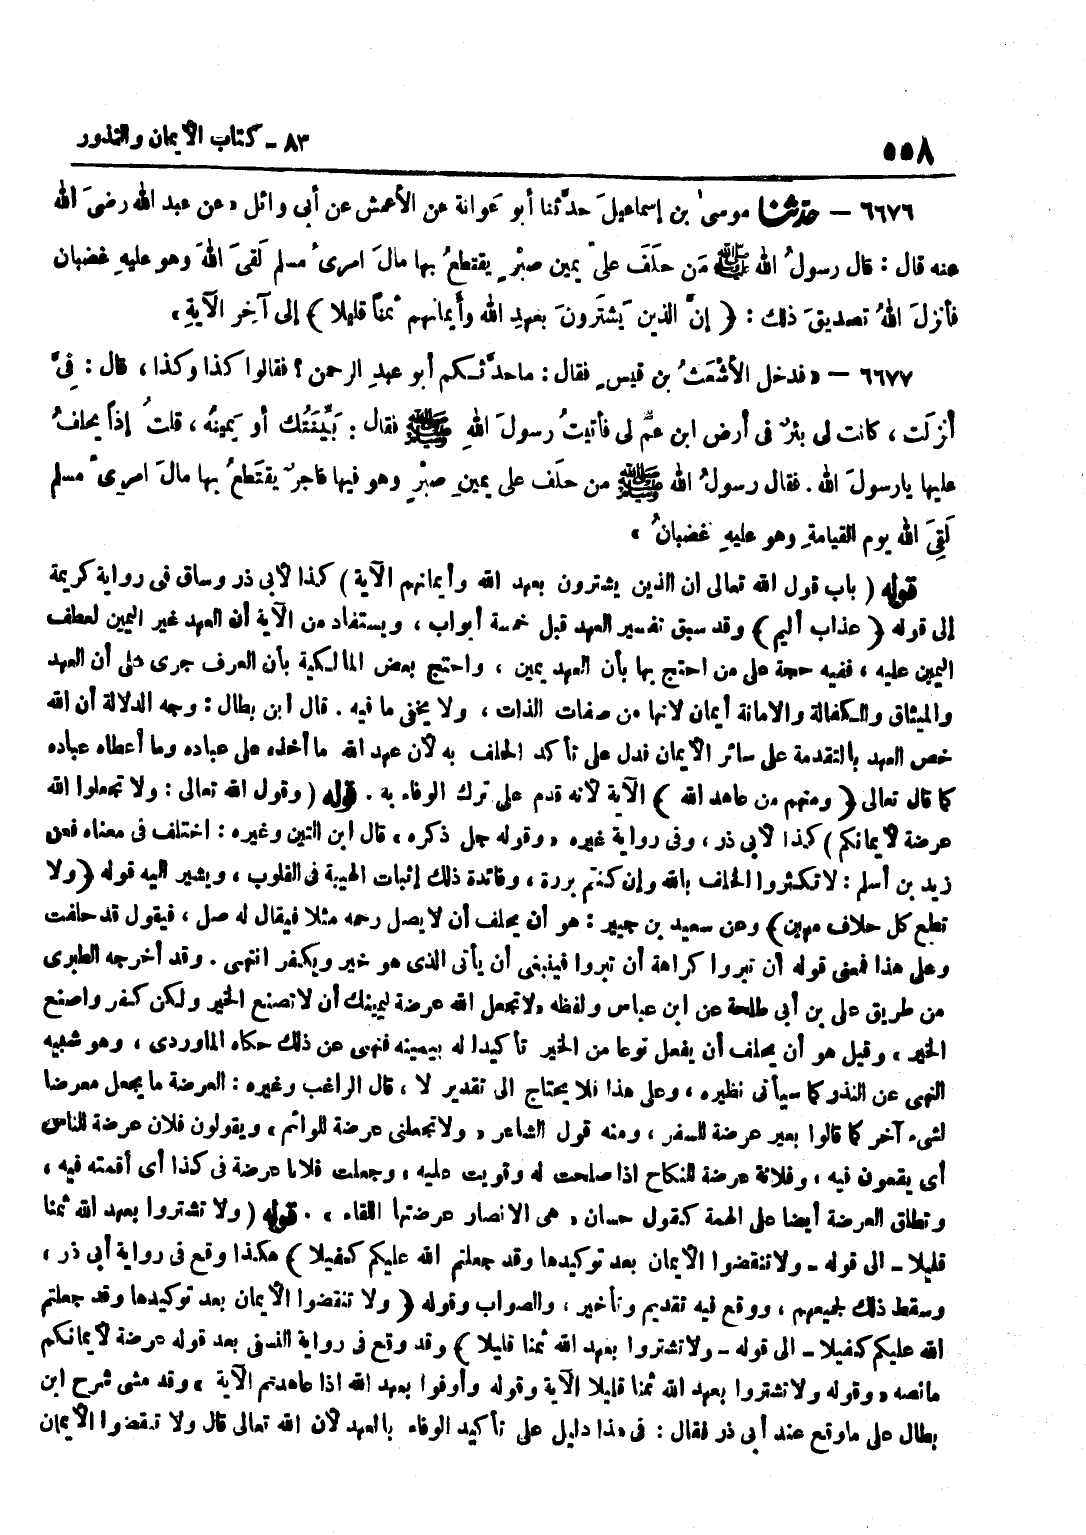 ٥٥٨
٨٣ - كتاب الأيمان والنذور
٦٦٧٦ - حدثنا موسىٰ بن إسماعيلَ حدَّثنا أبو عَوانة عن الأعمش عن أبى وائل « عن عبد الله رضىَ الله
عنه قال : قال رسولُ الله ﷺ مَن حلَفَ علىٰ يمين صبْرٍ يقتطعُ بها مالَ امرىءٍ مسلم لَقىَ اللهَ وهو عليهِ غضبان
فأنزلَ اللهُ تصديقَ ذلك : ﴿ إنَّ الذين يَشتَرونَ بعهدِ الله وأَيمانهم ثمناً قليلا ﴾ إلى آخِر الآيةِ »
٦٦٧٧ - « فدخل الأشْعَثُ بن قيسٍ فقال : ماحدَّثـكم أبو عبدِ الرحمن ؟ فقالوا كذا وكذا ، قال : فىَّ
أنزلَت ، كانت لى بئرٌ فى أرض ابن عمٍّ لى فأتيتُ رسولَ اللهِ ﷺ فقال : بَيِّنَتُك أو يمينُه ، قلتُ إذاً يحلفُ
عليها يارسولَ الله . فقال رسولُ الله ﷺ من حلَف على يمينِ صبْرٍ وهو فيها فاجرٌ يقتَطعُ بها مالَ امرىءٍ مسلم
لَقِىَ الله يوم القيامةِ وهو عليهِ غضبانُ »
قوله ( باب قول الله تعالى ان الذين يشترون بعهد الله وأيمانهم الآية ) كذا لأبى ذر وساق فى رواية كريمة
إلى قوله ﴿ عذاب أليم ﴾ وقد سبق تفسير العهد قبل خمسة أبواب ، ويستفاد من الآية أن العهد غير اليمين لعطف
اليمين عليه ، ففيه حجة على من احتج بها بأن العهد يمين ، واحتج بعض المالـكية بأن العرف جرى على أن العهد
والميثاق والـكفالة والامانة أيمان لانها من صفات الذات ، ولا يخفى ما فيه . قال ابن بطال : وجه الدلالة أن الله
خص العهد بالتقدمة على سائر الأيمان فدل على تأكد الحلف به لأن عهد الله ما أخذه على عباده وما أعطاه عباده
كما قال تعالى ﴿ ومنهم من عاهد الله ﴾ الآية لأنه قدم على ترك الوفاء به . قوله ( وقول الله تعالى : ولا تجعلوا الله
عرضة لأيمانكم ) كذا لأبى ذر ، وفى رواية غيره « وقوله جل ذكره » قال ابن التين وغيره : اختلف فى معناه فعن
زيد بن أسلم : لا تكثروا الحلف بالله وإن كنتم بررة ، وفائدة ذلك إثبات الهيبة فى القلوب ، ويشير اليه قوله ﴿ ولا
تطع كل حلاف مهين ﴾ وعن سعيد بن جبير : هو أن يحلف أن لا يصل رحمه مثلا فيقال له صل ، فيقول قد حلفت
وعلى هذا فمعنى قوله أن تبروا كراهة أن تبروا فينبغى أن يأتى الذى هو خير ويكفر انتهى . وقد أخرجه الطبرى
من طريق على بن أبى طلحة عن ابن عباس ولفظه « لاتجعل الله عرضة ليمينك أن لاتصنع الخير ولكن كفر واصنع
الخير » وقيل هو أن يحلف أن يفعل نوعا من الخير تأكيدا له بيمينه فنهى عن ذلك حكاه الماوردى ، وهو شبيه
النهى عن النذر كما سيأتى نظيره ، وعلى هذا فلا يحتاج الى تقدير لا ، قال الراغب وغيره : العرضة ما يجعل معرضا
لشىء آخر كما قالوا بعير عرضة للسفر ، ومنه قول الشاعر « ولاتجعلنى عرضة للوائم » ويقولون فلان عرضة للناس
أى يقعون فيه ، وفلانة عرضة للنكاح اذا صلحت له وقويت عليه ، وجعلت فلانا عرضة فى كذا أى أقمته فيه ،
وتطلق العرضة أيضا على الهمة كقول حسان « هى الانصار عرضتها اللقاء » . قوله ( ولا تشتروا بعهد الله ثمنا
قليلا - الى قوله - ولاتنقضوا الأيمان بعد توكيدها وقد جعلتم الله عليكم كفيلا ) هكذا وقع فى رواية أبى ذر ،
وسقط ذلك لجميعهم ، ووقع فيه تقديم وتأخير ، والصواب وقوله ﴿ ولا تنقضوا الأيمان بعد توكيدها وقد جعلتم
الله عليكم كفيلا - الى قوله - ولاتشتروا بعهد الله ثمنا قليلا ﴾ وقد وقع فى رواية النسفى بعد قوله عرضة لأيمانكم
مانصه « وقوله ولاتشتروا بعهد الله ثمنا قليلا الآية وقوله وأوفوا بعهد الله اذا عاهدتم الآية » وقد مشى شرح ابن
بطال على ماوقع عند أبى ذر فقال : فى هذا دليل على تأكيد الوفاء بالعهد لأن الله تعالى قال ولا تنقضوا الأيمان